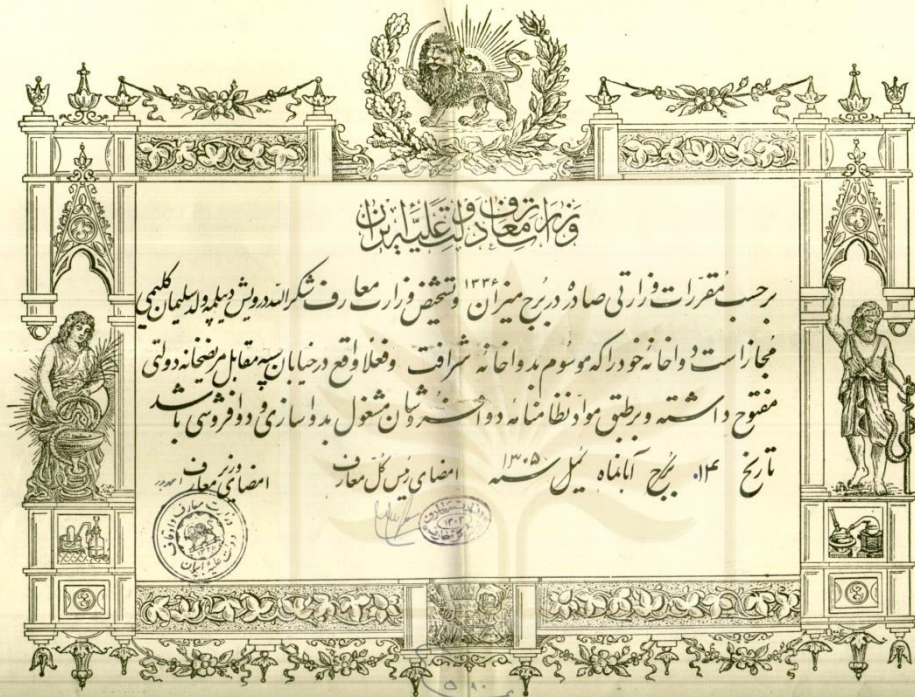 وزارت معارف دولت علیّه ایران
برحسب مقررات وزارتی صادره در برج میزان ۱۳۳۶ و تشخیص وزارت معارف شکرالله درویش ولد سلیمان کلیمی
مجاز است دواخانه خود را که موسوم بدواخانه شرافت و فعلا واقع در خیابان سپه مقابل مریضخانه دولتی
مفتوح داشته و برطبق مواد نظامنامه دوافروشان مشغول بدواسازی و دوافروشی باشد
تاریخ ۱۴ برج آبانماه ئیل سنه ۱۳۰۵ امضای رئیس کل معارف امضای وزیر معارف
وزارت معارف و اوقاف
دولت علیه ایران